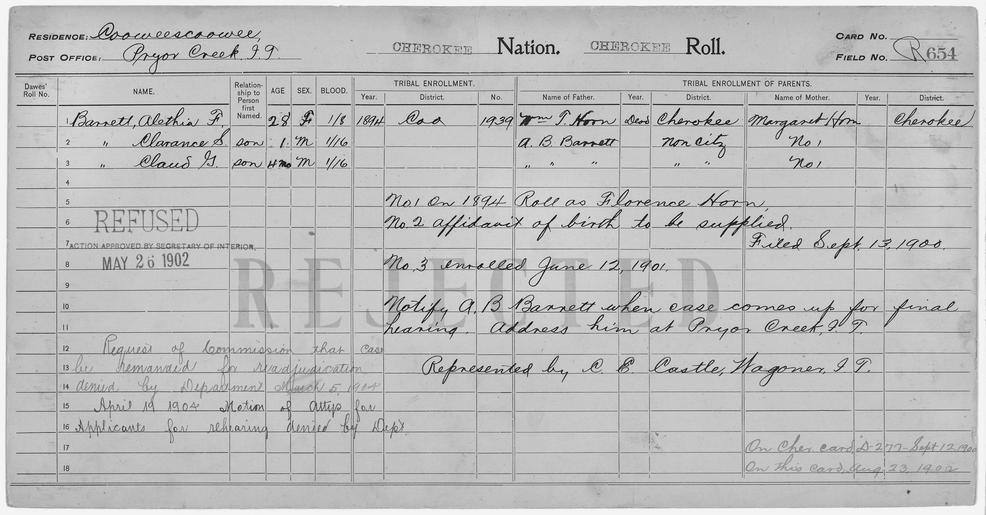 RESIDENCE: Cooweescoowee,
POST OFFICE: Pryor Creek, I.T.
CHEROKEE Nation. CHEROKEE Roll.
CARD NO.
FIELD NO. R 654
Dawes' Roll No. NAME. Relationship to Person first Named. AGE SEX. BLOOD. TRIBAL ENROLLMENT. TRIBAL ENROLLMENT OF PARENTS.
Year. District. No. Name of Father. Year. District. Name of Mother. Year. District.
1 Barrett, Alethia F. 28 F 1/8 1894 Coo 1939 Wm T. Horn Dead Cherokee Margaret Horn Cherokee
2 " Clarance S. son 1 M 1/16 A. B. Barrett non citz No 1
3 " Claud G. son 4 mo M 1/16 " " " " " No 1
4
5 No. 1 on 1894 Roll as Florence Horn,
6 No. 2 affidavit of birth to be supplied.
REFUSED
7 Filed Sept. 13, 1900.
ACTION APPROVED BY SECRETARY OF INTERIOR.
MAY 26 1902
8 No. 3 enrolled June 12, 1901.
REJECTED
9
10 Notify A. B. Barrett when case comes up for final
11 hearing. Address him at Pryor Creek, I.T.
12 Request of Commission that case
13 be remanded for readjudication
Represented by C. E. Castle, Wagoner, I.T.
14 denied by Department March 5, 1904
15 April 19 1904 Motion of attys for
16 Applicants for rehearing denied by Dep't.
17 On Cher. card D-277-Sept 12, 1900
18 On this card, Aug. 23, 1902